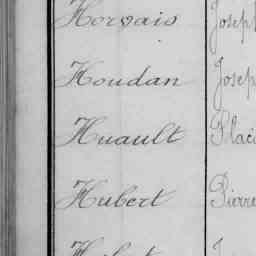 Horvais Joseph
Houdan Josep
Huault Placi
Hubert Pierre